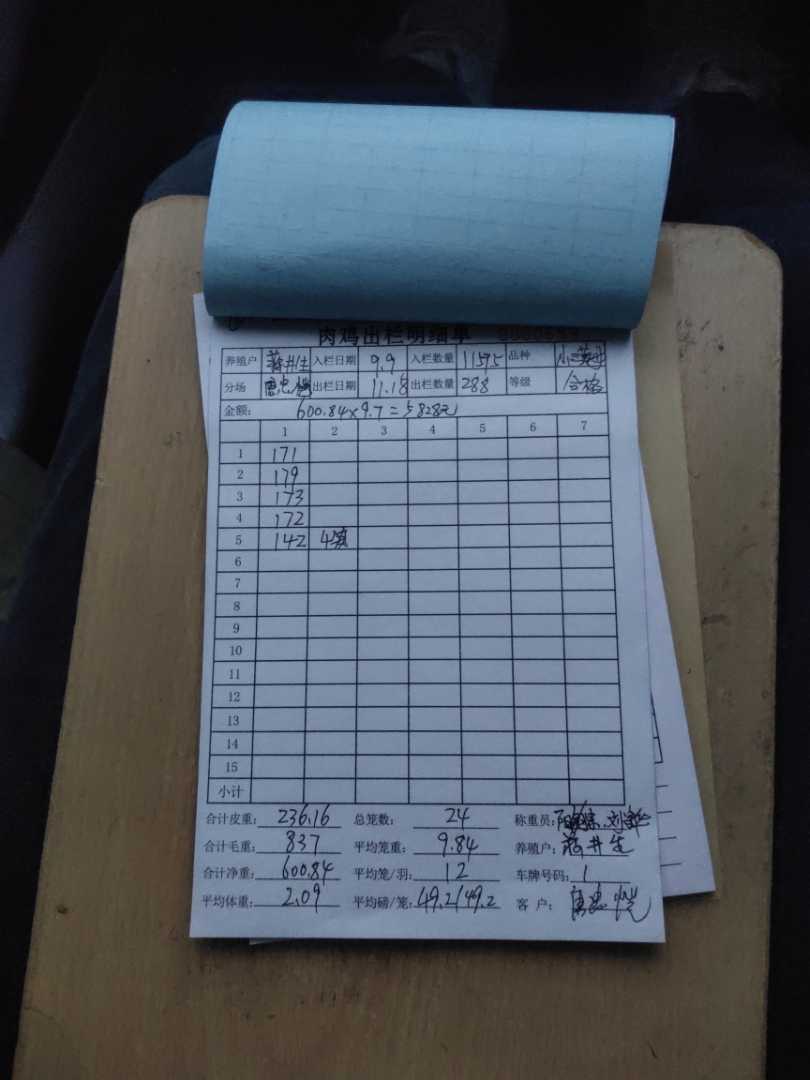 肉鸡出栏明细单
养殖户 蒋井生 入栏日期 9.9 入栏数量 11595 品种
分场 出栏日期 11.18 出栏数量 288 等级 合格
金额: 600.84×9.7=5828元
1 2 3 4 5 6 7
1 171
2 179
3 173
4 172
5 142 4笼
6
7
8
9
10
11
12
13
14
15
小计
合计皮重: 236.16 总笼数: 24 称重员:
合计毛重: 837 平均笼重: 9.84 养殖户: 蒋井生
合计净重: 600.84 平均笼/羽: 12 车牌号码: 1
平均体重: 2.09 平均磅/笼: 49.2/49.2 客 户: